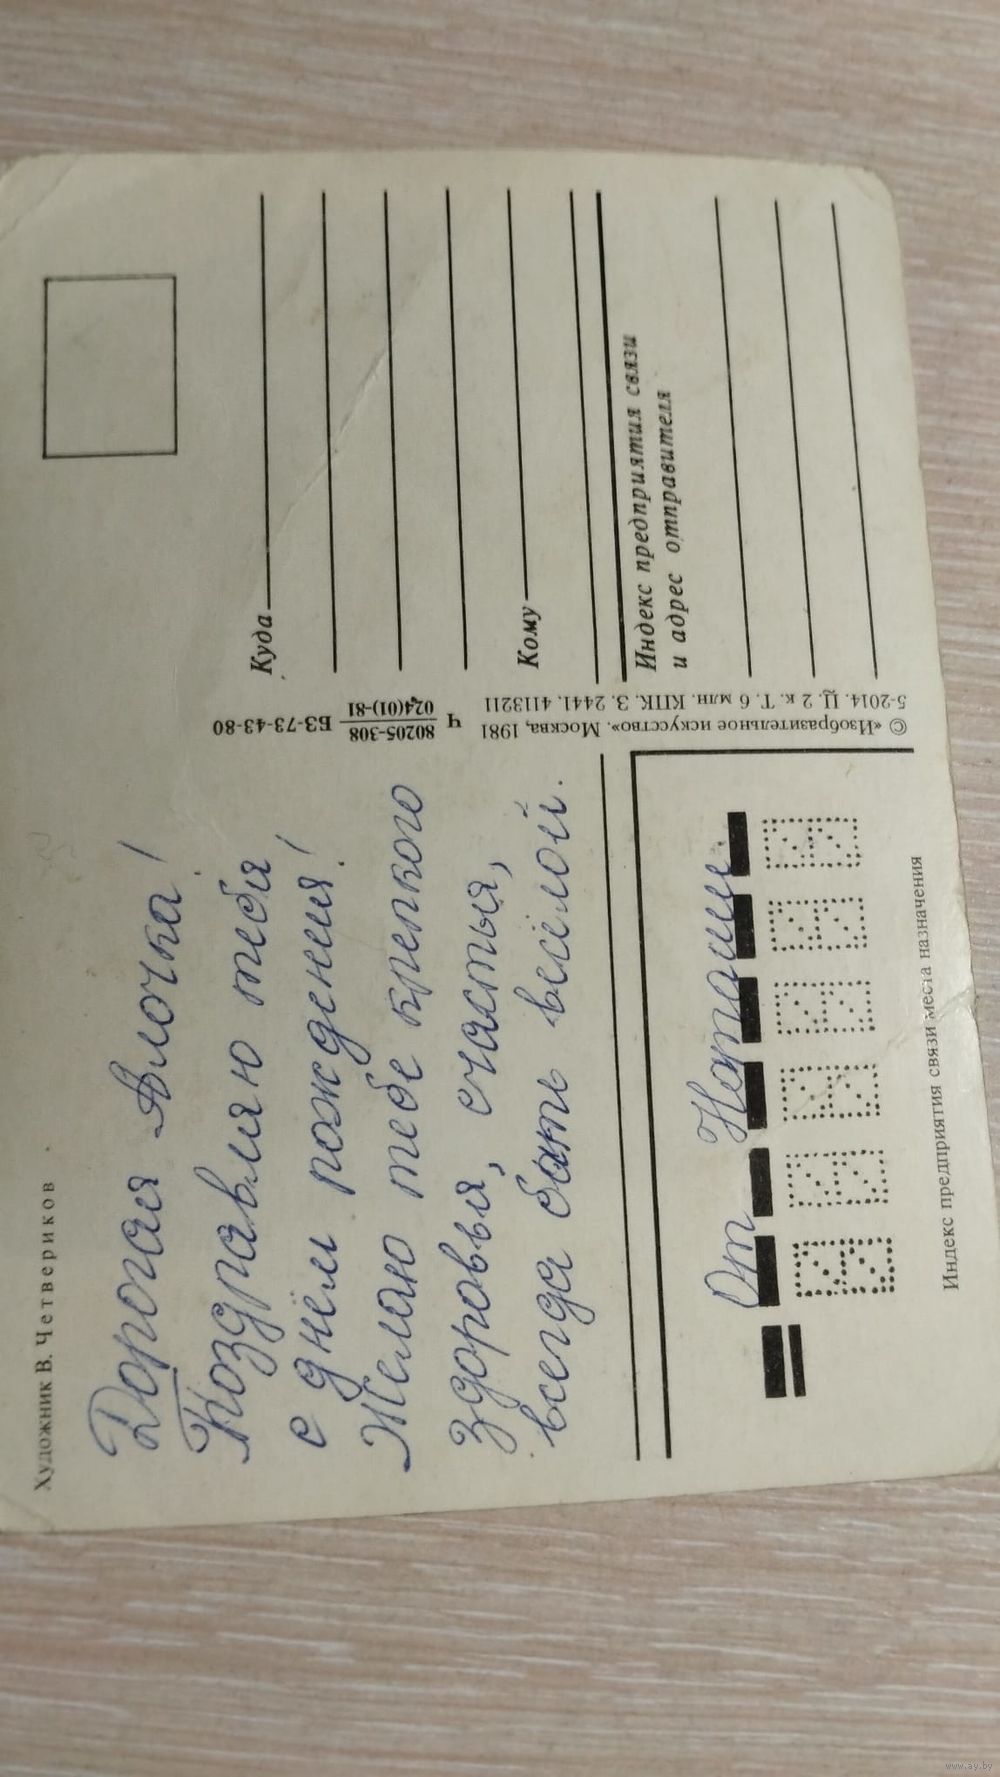 Художник В. Четвериков
Дорогая Алочка!
Поздравляю тебя
с днём рождения!
Желаю тебе крепкого
здоровья, счастья,
всегда быть весёлой.
От Наташи.
Индекс предприятия связи места назначения
80205-308
024(01)-81
Ч
БЗ-73-43-80
© «Изобразительное искусство». Москва, 1981
5-2014. Ц. 2 к. Т. 6 млн. КПК. З. 2441. 4113211
Куда
Кому
Индекс предприятия связи
и адрес отправителя
www.ay.by